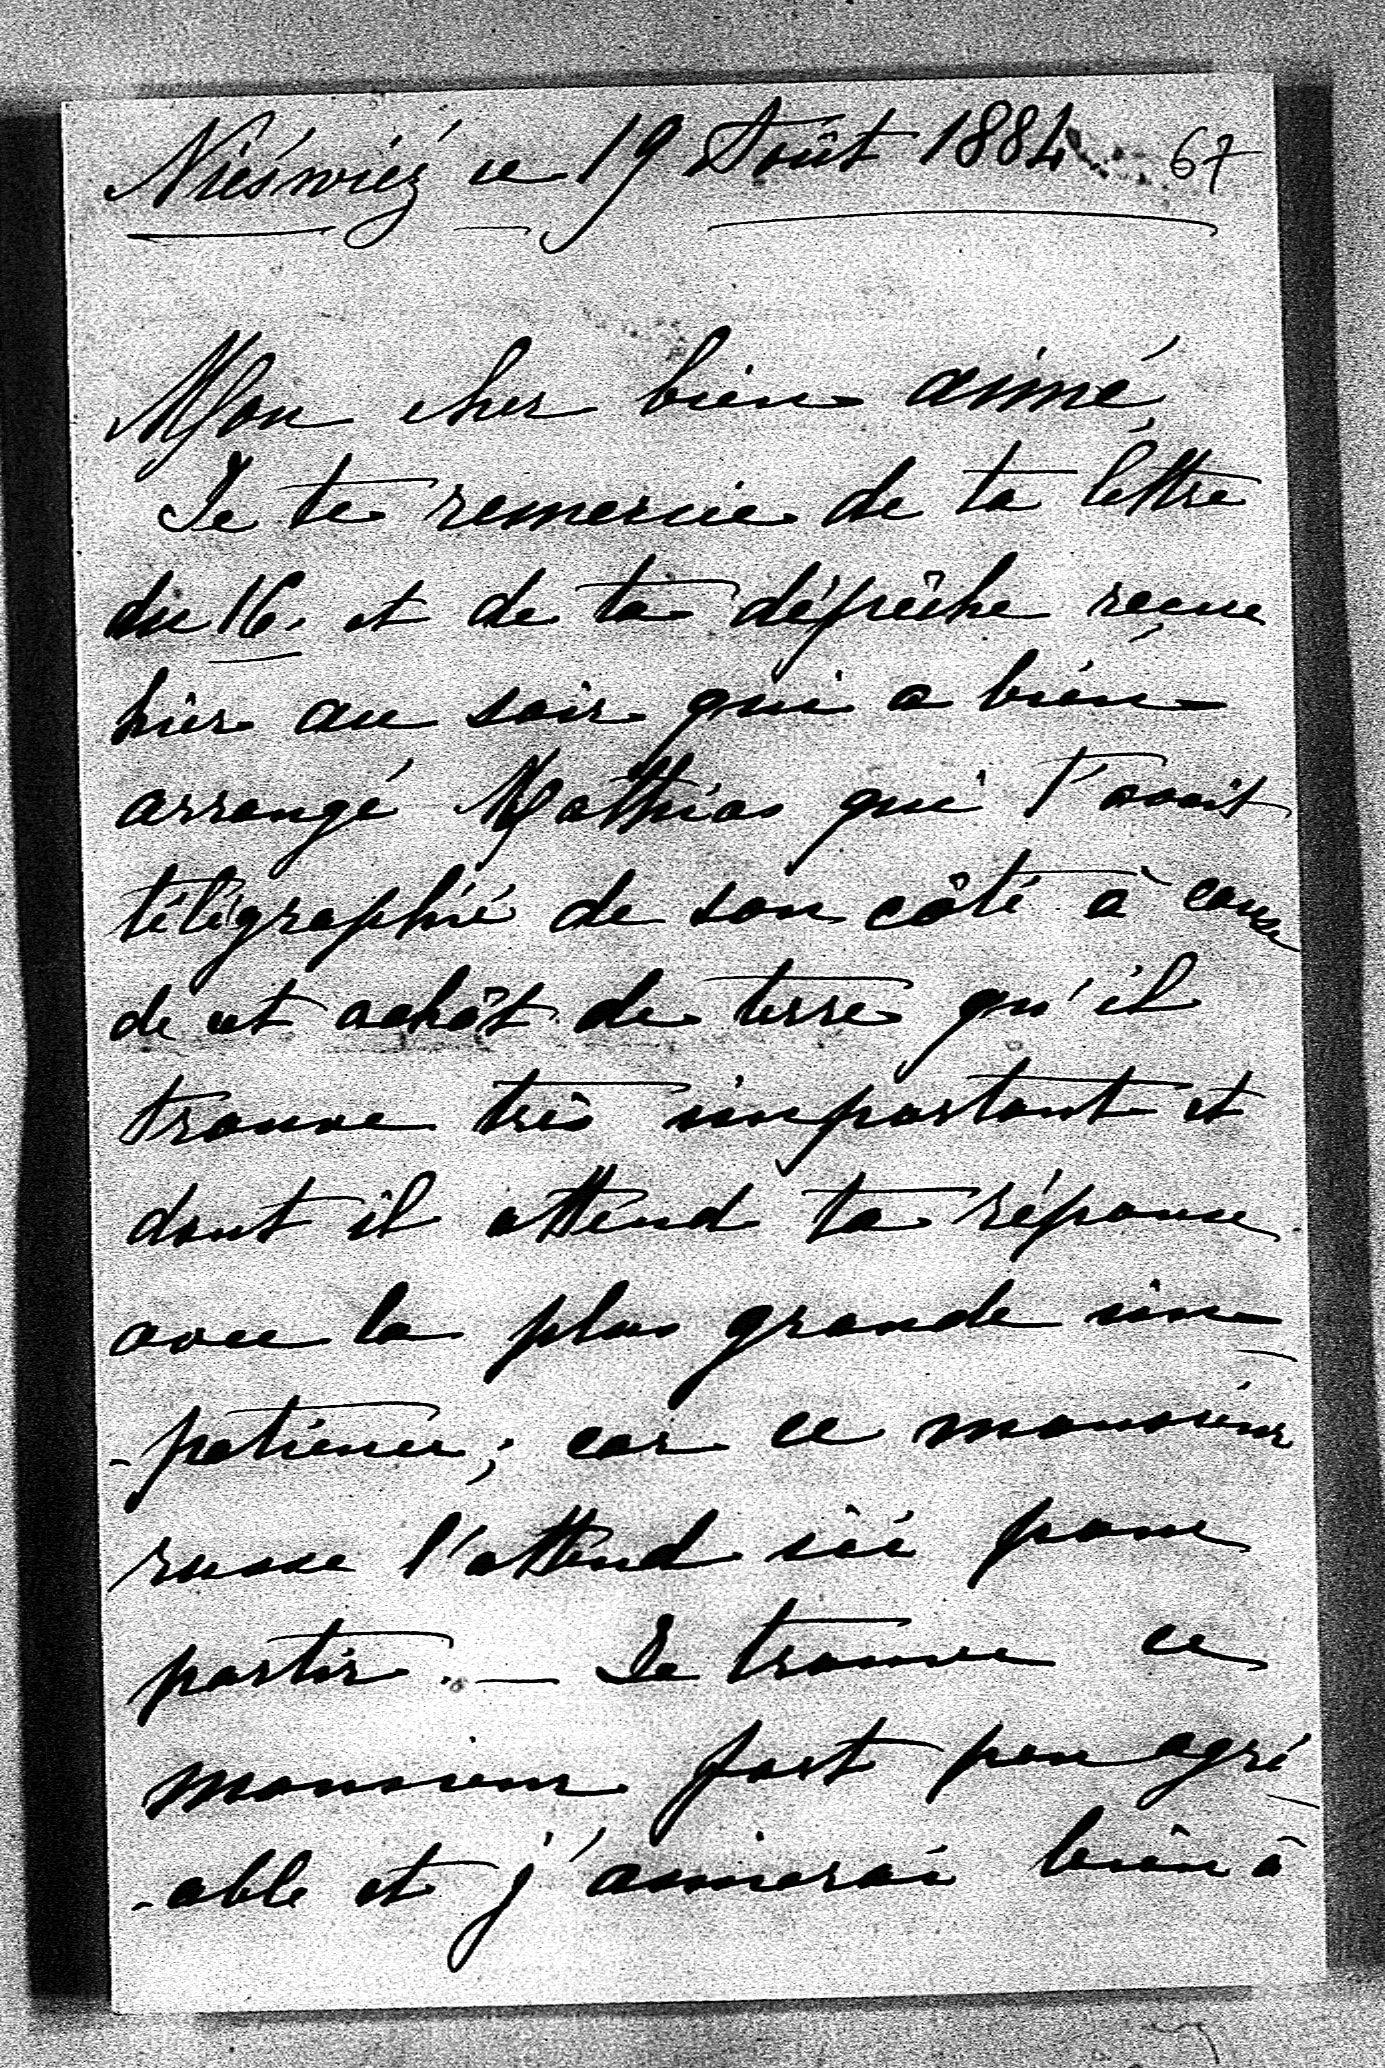 Nieświéź ce 19 Août 1884. 67
Mon cher bien aimé,
Je te remercie de ta lettre
du 16. et de ta dépêche recue
hier au soir qui a bien
arrangé Mathias qui t'avait
télégraphié de son côté à cause
de cet achât de terre qu'il
trouve très important et
dont il attend ta réponse
avec la plus grande im-
-patience; car ce monsieur
russe l'attend ici pour
partir. — Je trouve ce
monsieur fort peu agré-
-able et j'aimerai bien à